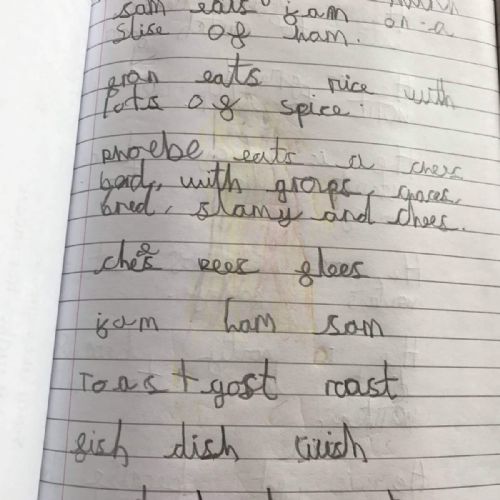 sam eats jam on a
slise of ham.
gran eats rice with
lots of spice.
phoebe eats a chees
bord, with graps,
bred, slamy and chees.
chees rees glees
jam ham sam
Toast gost roast
fish dish